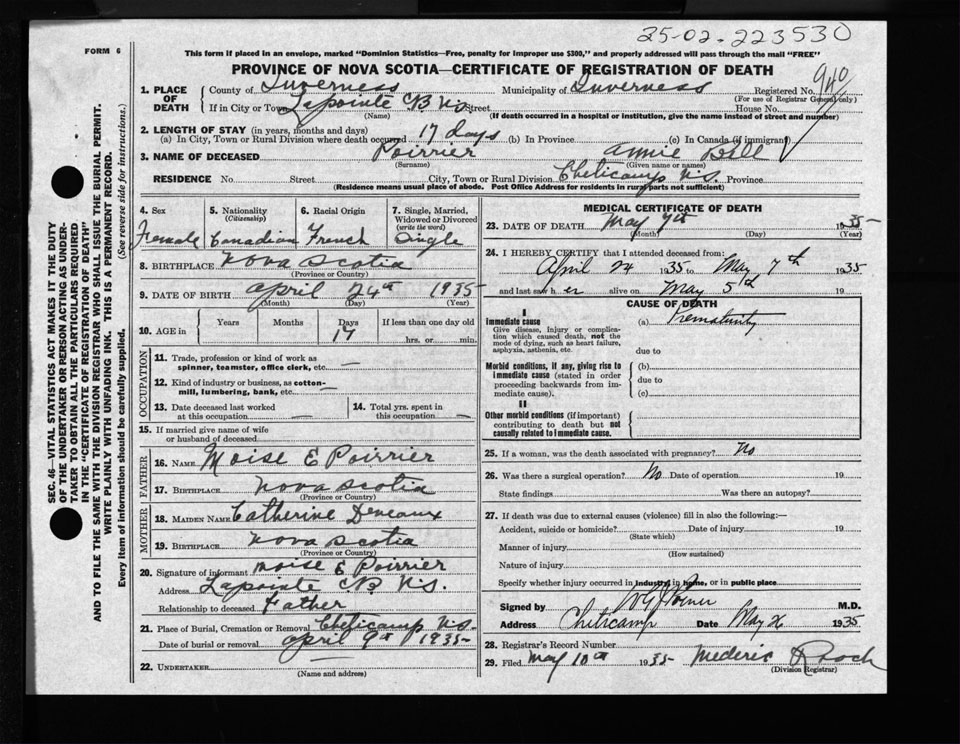 35-02-223530
FORM 6
This form if placed in an envelope, marked "Dominion Statistics—Free, penalty for improper use $300," and properly addressed will pass through the mail "FREE"
PROVINCE OF NOVA SCOTIA—CERTIFICATE OF REGISTRATION OF DEATH
940
1. PLACE OF DEATH
County of Inverness Municipality of Inverness Registered No.
(For use of Registrar General only)
If in City or Town Lapointe CB N.S. Street House No.
(Name) (If death occurred in a hospital or institution, give the name instead of street and number)
2. LENGTH OF STAY (in years, months and days)
(a) In City, Town or Rural Division where death occurred 17 days (b) In Province (c) In Canada (if immigrant)
3. NAME OF DECEASED Poirrier Annie Bell
(Surname) (Given name or names)
RESIDENCE No. Street City, Town or Rural Division Cheticamp N.S. Province
(Residence means usual place of abode. Post Office Address for residents in rural parts not sufficient)
4. Sex Female
5. Nationality (Citizenship) Canadian
6. Racial Origin French
7. Single, Married, Widowed or Divorced (write the word) Single
8. BIRTHPLACE Nova Scotia
(Province or Country)
9. DATE OF BIRTH April 24th 1935
(Month) (Day) (Year)
10. AGE in Years Months Days 17 If less than one day old
hrs. or min.
OCCUPATION
11. Trade, profession or kind of work as spinner, teamster, office clerk, etc. —
12. Kind of industry or business, as cotton-mill, lumbering, bank, etc. —
13. Date deceased last worked at this occupation —
14. Total yrs. spent in this occupation —
15. If married give name of wife or husband of deceased
FATHER
16. NAME Moise E Poirrier
17. BIRTHPLACE Nova Scotia
(Province or Country)
MOTHER
18. MAIDEN NAME Catherine Deveaux
19. BIRTHPLACE Nova Scotia
(Province or Country)
20. Signature of informant Moise E Poirrier
Address Lapointe CB N.S.
Relationship to deceased Father
21. Place of Burial, Cremation or Removal Cheticamp N.S.
Date of burial or removal April 9th 1935
22. UNDERTAKER —
(Name and address)
MEDICAL CERTIFICATE OF DEATH
23. DATE OF DEATH May 7th 1935
(Month) (Day) (Year)
24. I HEREBY CERTIFY that I attended deceased from:
April 24 1935 to May 7th 1935
and last saw her alive on May 5th 19
CAUSE OF DEATH
I
Immediate cause
Give disease, injury or complication which caused death, not the mode of dying, such as heart failure, asphyxia, asthenia, etc.
(a) Prematurity
due to
Morbid conditions, if any, giving rise to immediate cause (stated in order proceeding backwards from immediate cause).
(b)
due to
(c)
II
Other morbid conditions (if important) contributing to death but not causally related to immediate cause.
25. If a woman, was the death associated with pregnancy? No
26. Was there a surgical operation? No Date of operation 19
State findings Was there an autopsy?
27. If death was due to external causes (violence) fill in also the following:
Accident, suicide or homicide? Date of injury 19
(State which)
Manner of injury
(How sustained)
Nature of injury
Specify whether injury occurred in industry, in home, or in public place
Signed by M.D.
Address Cheticamp Date May 1935
28. Registrar's Record Number
29. Filed May 10th 1935 Mederic Roach
(Division Registrar)
SEC. 46—VITAL STATISTICS ACT MAKES IT THE DUTY
OF THE UNDERTAKER OR PERSON ACTING AS UNDER-
TAKER TO OBTAIN ALL THE PARTICULARS REQUIRED
IN THE "CERTIFICATE OF REGISTRATION OF DEATH"
AND TO FILE THE SAME WITH THE DIVISION REGISTRAR WHO SHALL ISSUE THE BURIAL PERMIT.
WRITE PLAINLY WITH UNFADING INK. THIS IS A PERMANENT RECORD.
Every item of information should be carefully supplied. (See reverse side for instructions.)